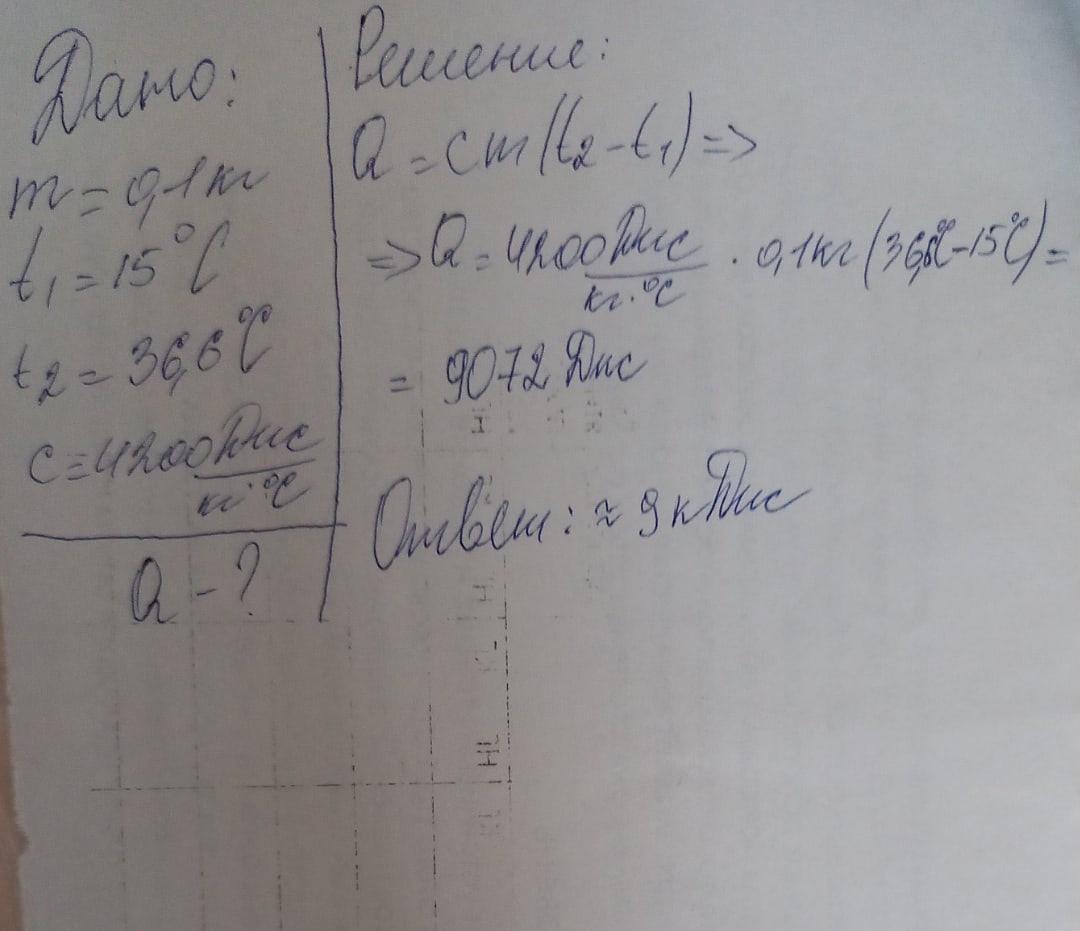 Дано:
m = 0,1 кг
t₁ = 15°C
t₂ = 36,6°C
c = 4200 Дж/кг·°C
Q - ?
Решение:
Q = cm(t₂ - t₁) =>
=> Q = 4200 Дж/кг·°C · 0,1 кг (36,6°C - 15°C) =
= 9072 Дж
Ответ: ≈ 9 кДж
HL